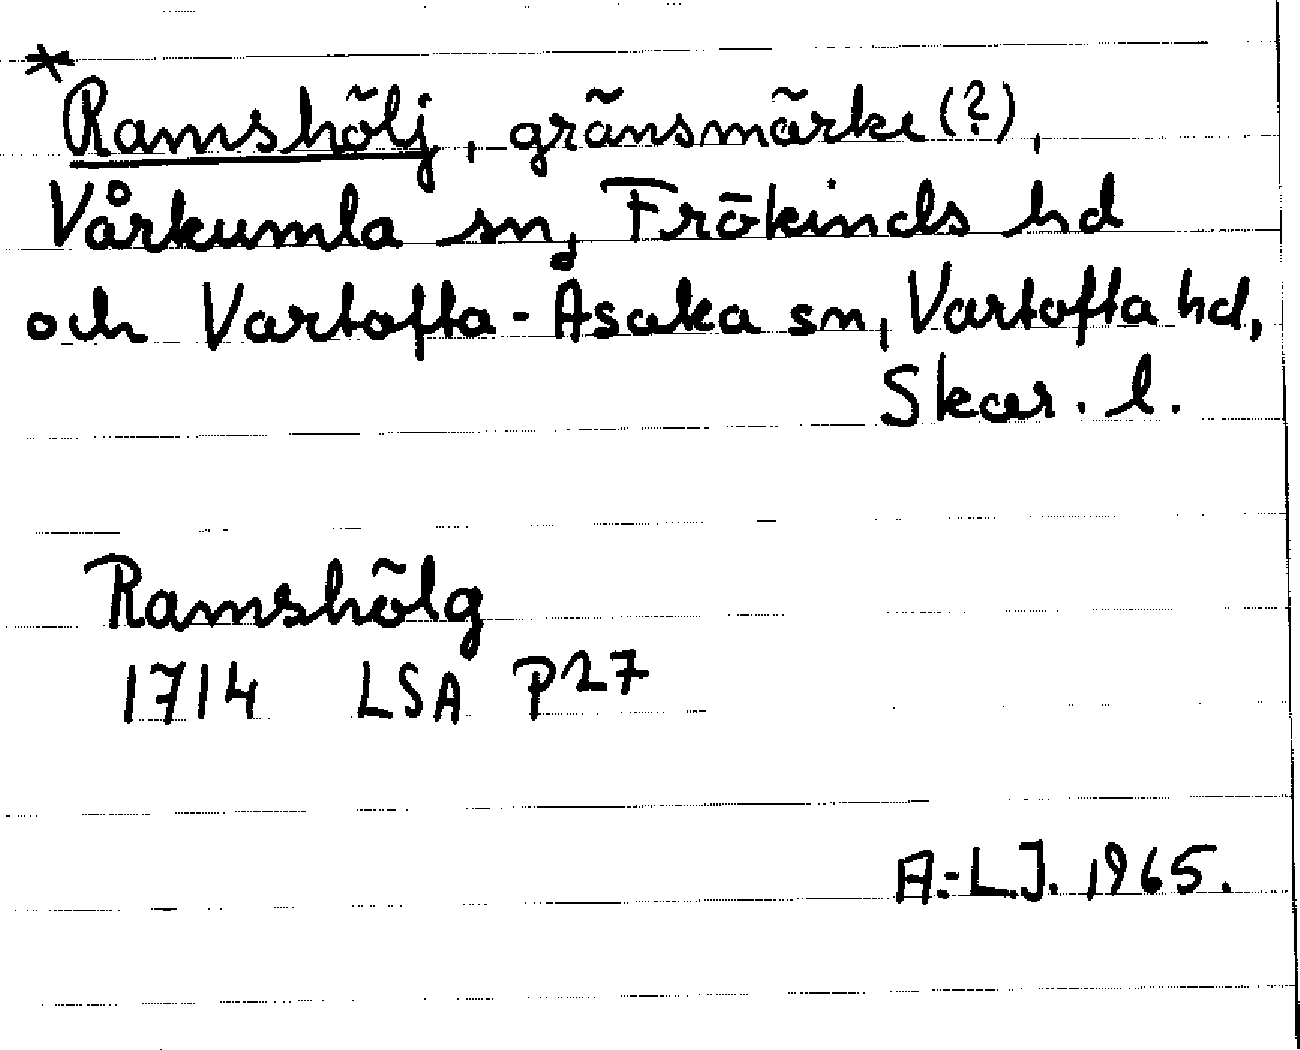 *
Ramshölj, gränsmärke (?),
Vårkumla sn, Frökinds hd
och Vartofta-Åsaka sn, Vartofta hd,
Skar. l.
Ramshölg
1714 LSA P27
A.-L.J. 1965.